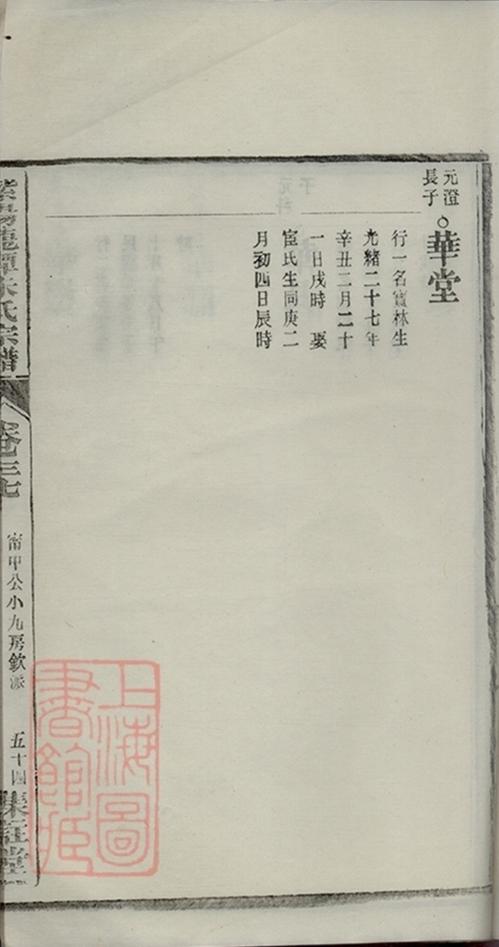 元澄
長子
○華堂
行一名寶林生
光緒二十七年
辛丑二月二十
一日戌時 娶
宦氏生同庚二
月初四日辰時
朱氏宗譜
卷三七
甯甲公小九房欽派
五十四
集註堂
上海圖
書館